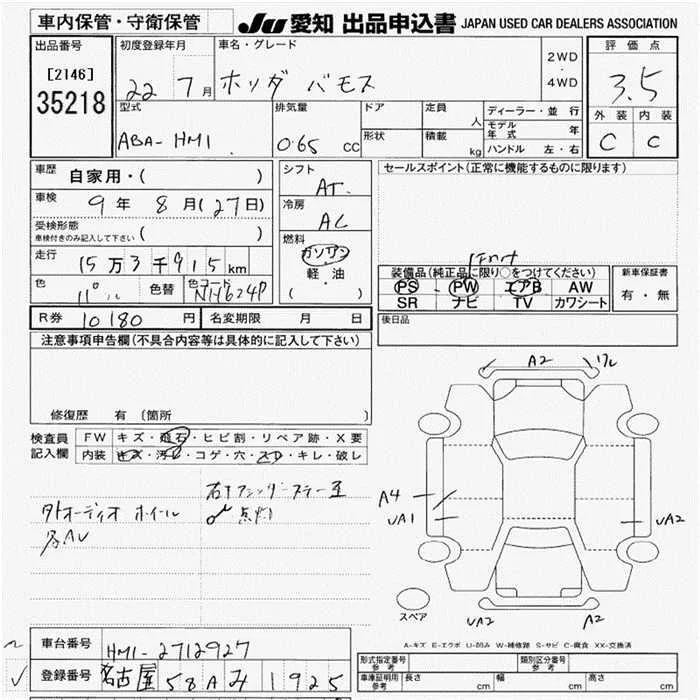 車内保管・守衛保管
JU 愛知 出品申込書 JAPAN USED CAR DEALERS ASSOCIATION
出品番号
[2146]
35218
初度登録年月
22 7月
車名・グレード
ホンダ バモス
2WD
・
4WD
評価点
3.5
外装 内装
C C
型式
ABA-HM1
排気量
0.65 cc
ドア
形状
定員
人
積載
kg
ディーラー・並行
モデル年式 年
ハンドル 左・右
車歴
自家用・( )
車検
9年 8月(27日)
受検形態
車検付きのみ記入して下さい ( )
走行
15万3千915km
色
パール
色替
色コード
NH624P
シフト
AT
冷房
AC
燃料
ガソリン
軽・油
( )
セールスポイント(正常に機能するものに限ります)
装備品(純正品に限り○をつけてください)
PS・PW エアB AW
SR ナビ TV カワシート
新車保証書
有・無
R券 10180 円
名変期限 月 日
後日品
注意事項申告欄(不具合内容等は具体的に記入して下さい)
修復歴 有 (箇所 )
検査員記入欄
FW キズ・飛石・ヒビ割・リペア跡・X要
内装 キズ・汚レ・コゲ・穴・スレ・キレ・破レ
外オーディオ ホイール
点灯
A2 ワレ
A4
UA1
UA2
UA2
A2
スペア
A-キズ E-エクボ U-凹み W-補修跡 S-サビ C-腐食 XX-交換済
車台番号
HM1-2712927
登録番号
名古屋 58A み 1925
形式指定番号
参考
類別区分番号
参考
車庫証明用
参考
長さ cm
幅 cm
高さ cm